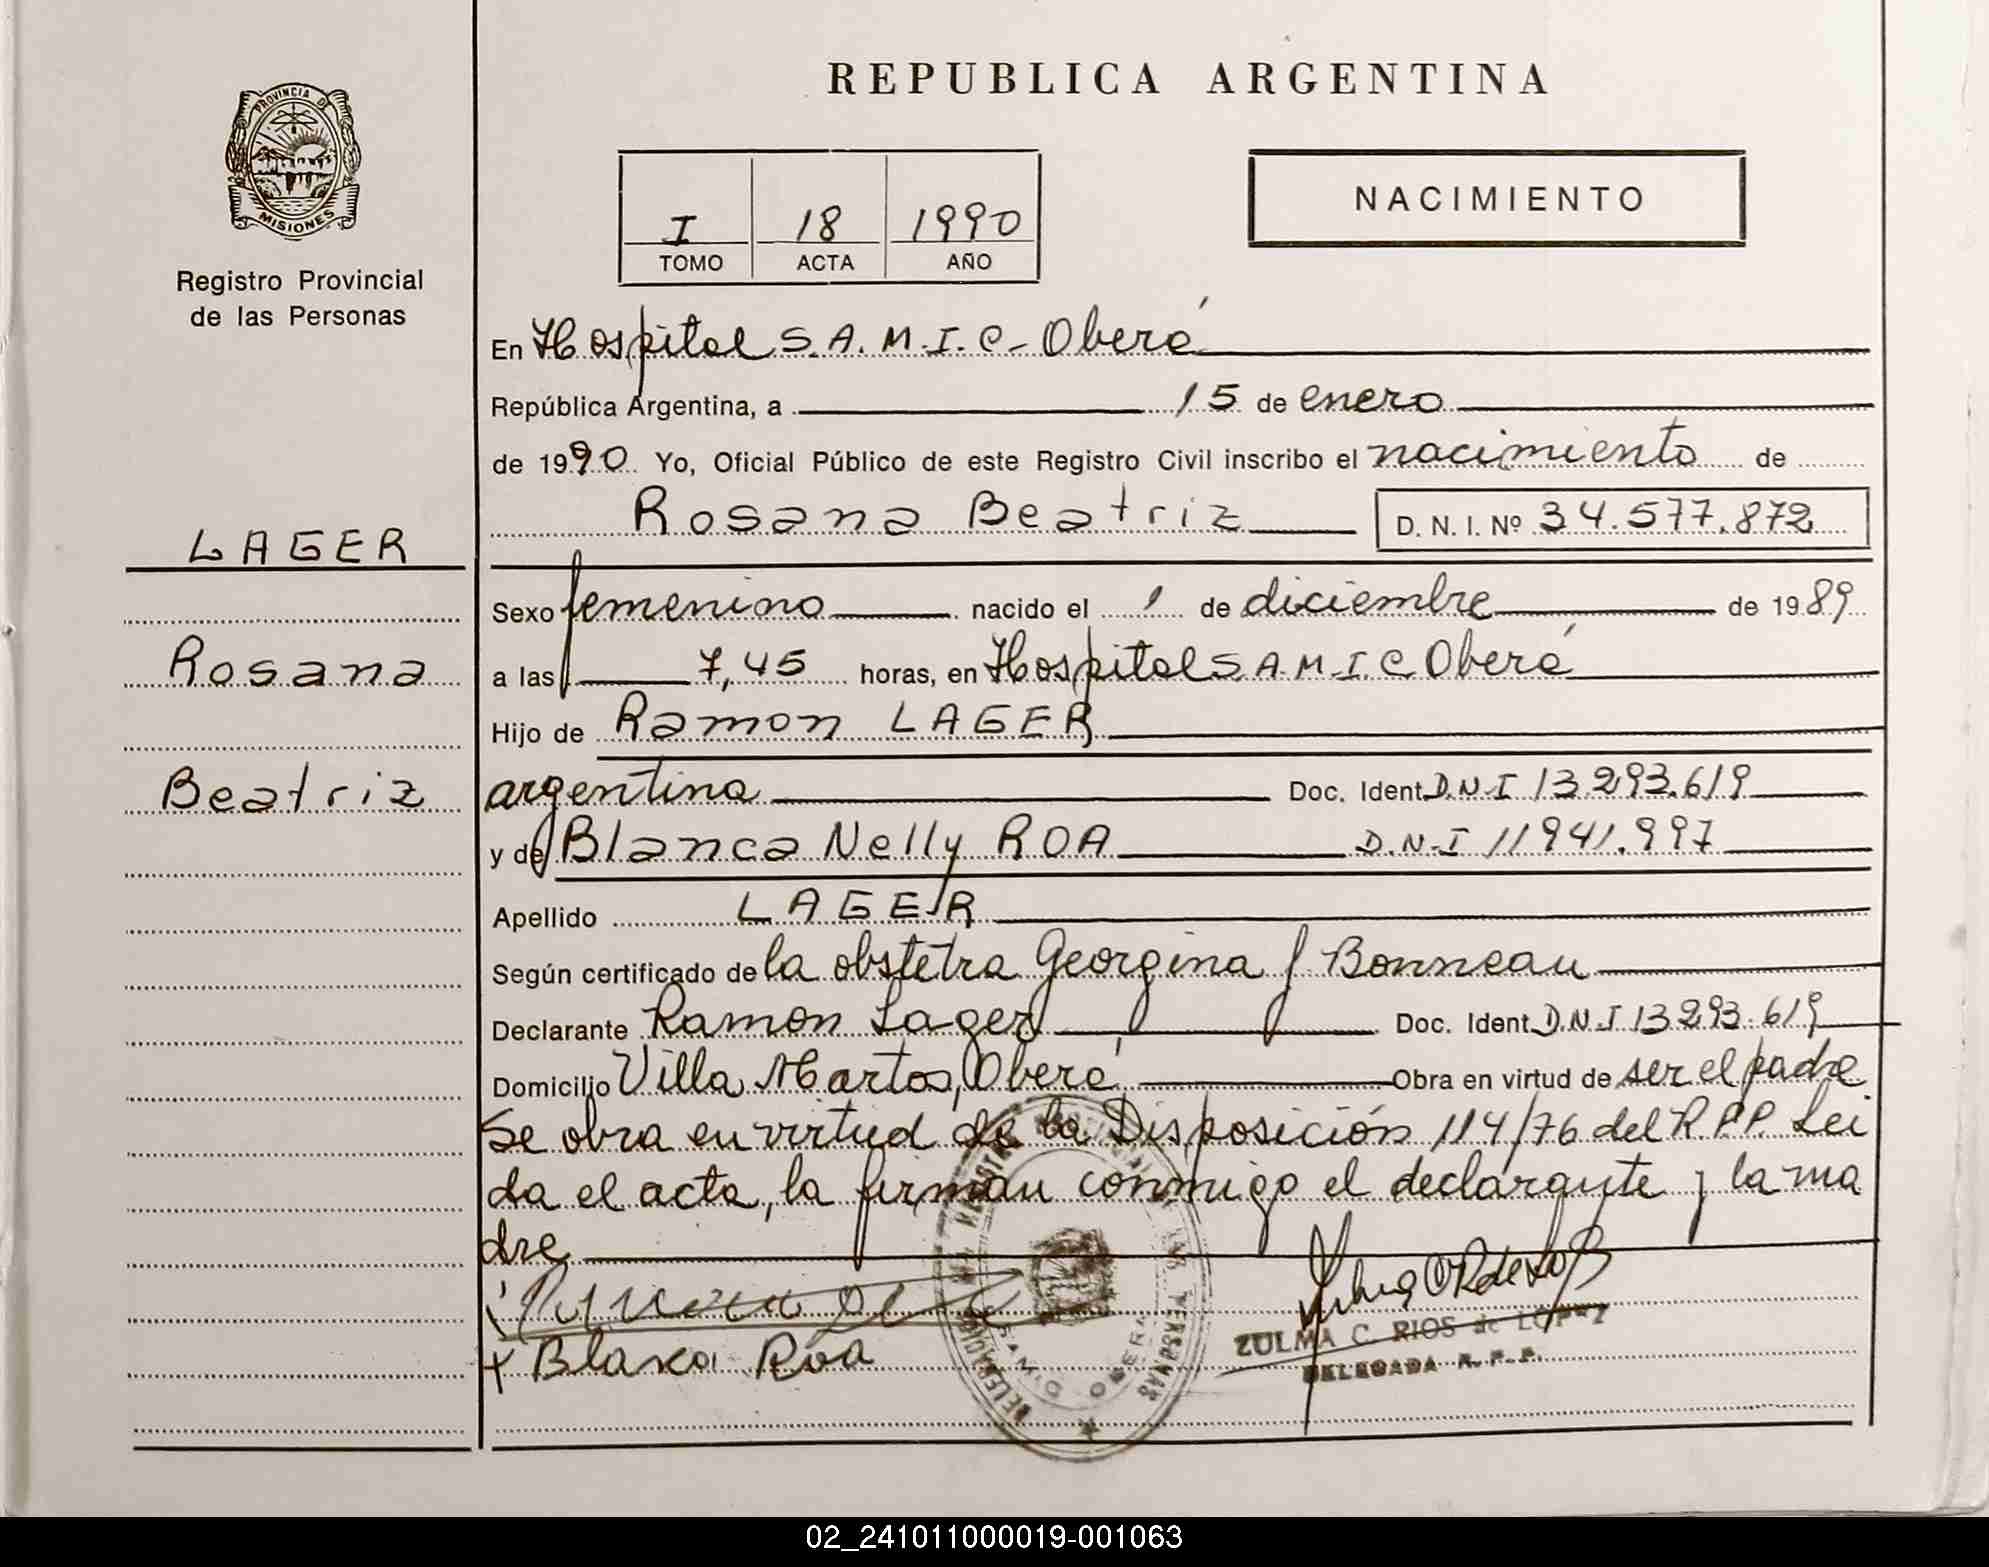 REPUBLICA ARGENTINA
PROVINCIA DE
MISIONES
Registro Provincial
de las Personas
NACIMIENTO
I 18 1990
TOMO ACTA AÑO
En Hospital S.A.M.I.C - Oberá
República Argentina, a 15 de enero
de 1990 Yo, Oficial Público de este Registro Civil inscribo el nacimiento de
Rosana Beatriz D. N. I. Nº 34.577.872
LAGER
Rosana
Beatriz
Sexo femenino nacido el 1 de diciembre de 1989
a las 7,45 horas, en Hospital S A.M.I.C Oberá
Hijo de Ramon LAGER
argentina Doc. Ident D.N.I 13.293.619
y de Blanca Nelly ROA D.N.I 11941.997
Apellido LAGER
Según certificado de la obstetra Georgina J Bonneau
Declarante Ramon Lager Doc. Ident D.N.I 13293.619
Domicilio Villa Martos, Oberá Obra en virtud de ser el padre
Se obra en virtud de la Disposición 114/76 del R.P.P. Lei
da el acta, la firman conmigo el declarante y la ma
dre
Blanca Roa
ZULMA C. RIOS de LOPEZ
DELEGADA R. P. P.
02_241011000019-001063